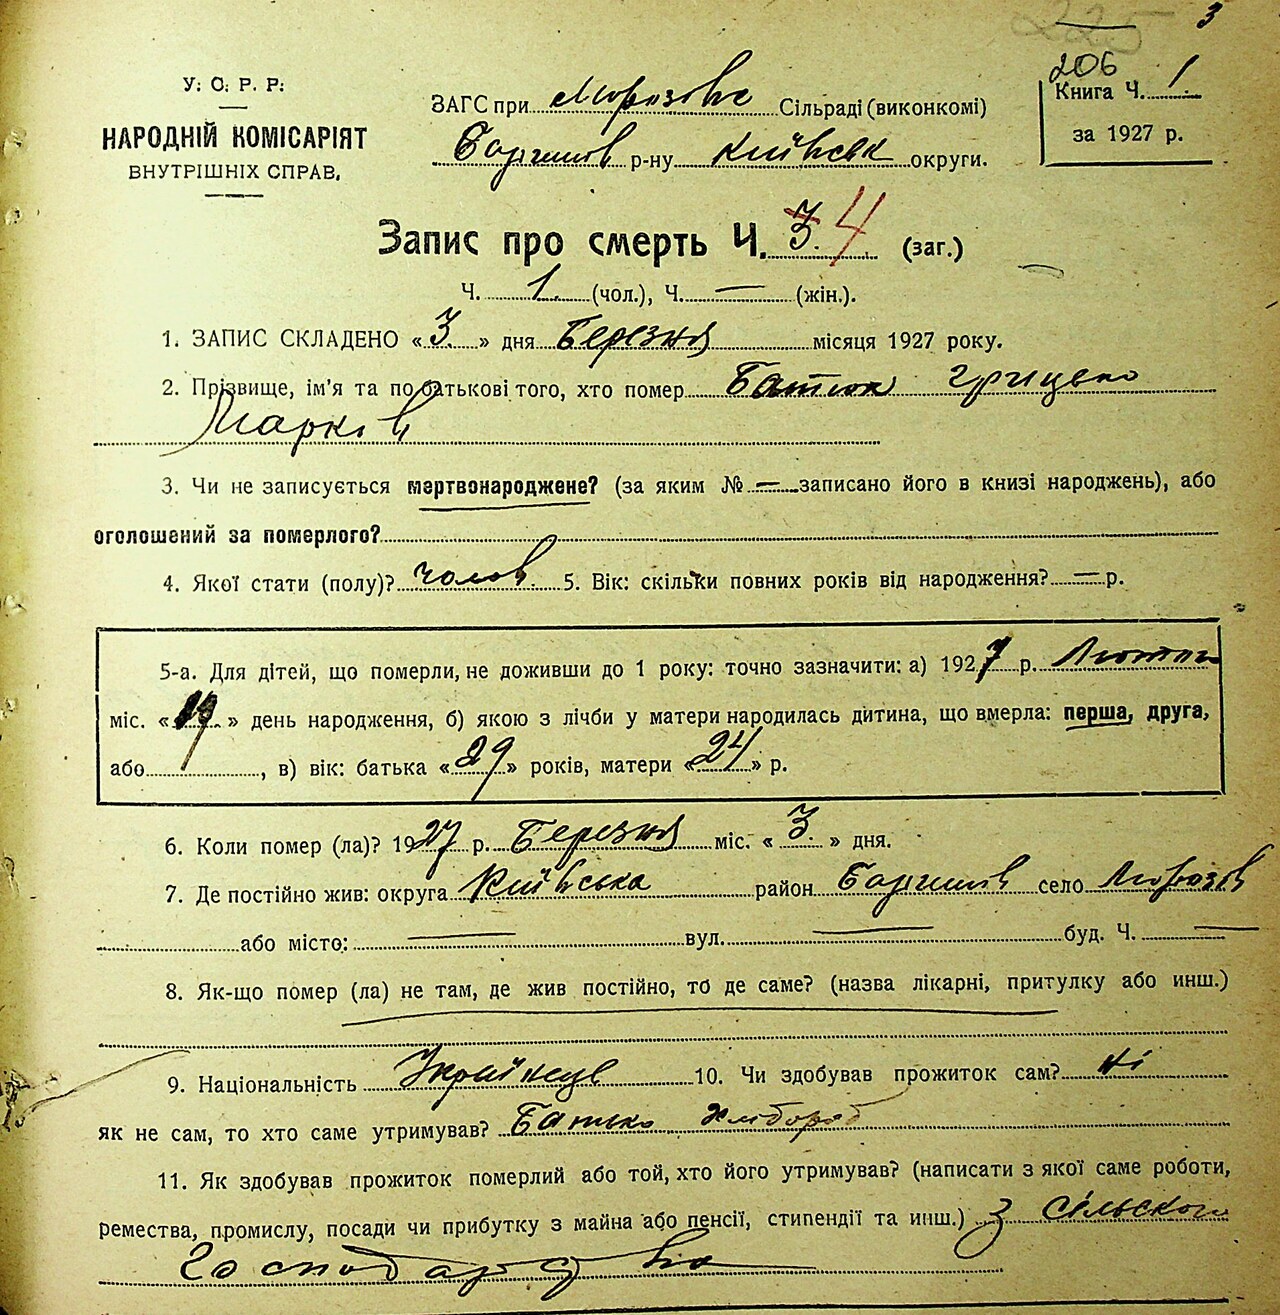 3
225
206
У. С. Р. Р.
НАРОДНІЙ КОМІСАРІЯТ
ВНУТРІШНІХ СПРАВ.
ЗАГС при Морозівс Сільраді (виконкомі)
Баришів р-ну Київськ округи.
Книга Ч. 1
за 1927 р.
Запис про смерть Ч. 3. 4 (заг.)
Ч. 1. (чол.), Ч. — (жін.).
1. ЗАПИС СКЛАДЕНО «3» дня Березня місяця 1927 року.
2. Прізвище, ім'я та по батькові того, хто помер Батюк Грицько
Марків
3. Чи не записується мертвонароджене? (за яким № — записано його в книзі народжень), або
оголошений за померлого?
4. Якої стати (полу)? чолов. 5. Вік: скільки повних років від народження? — р.
5-а. Для дітей, що померли, не доживши до 1 року: точно зазначити: а) 1927 р. Лютого
міс. «19» день народження, б) якою з лічби у матери народилась дитина, що вмерла: перша, друга,
або , в) вік: батька «29» років, матери «24» р.
6. Коли помер (ла)? 1927 р. Березня міс. «3.» дня.
7. Де постійно жив: округа Київська район Баришів село Морозів
або місто: — вул. — буд. Ч. —
8. Як-що помер (ла) не там, де жив постійно, то де саме? (назва лікарні, притулку або инш.)
9. Національність Українець 10. Чи здобував прожиток сам? Ні
як не сам, то хто саме утримував? Батько хлібороб
11. Як здобував прожиток померлий або той, хто його утримував? (написати з якої саме роботи,
ремества, промислу, посади чи прибутку з майна або пенсії, стипендії та инш.) З сільського
Господарства